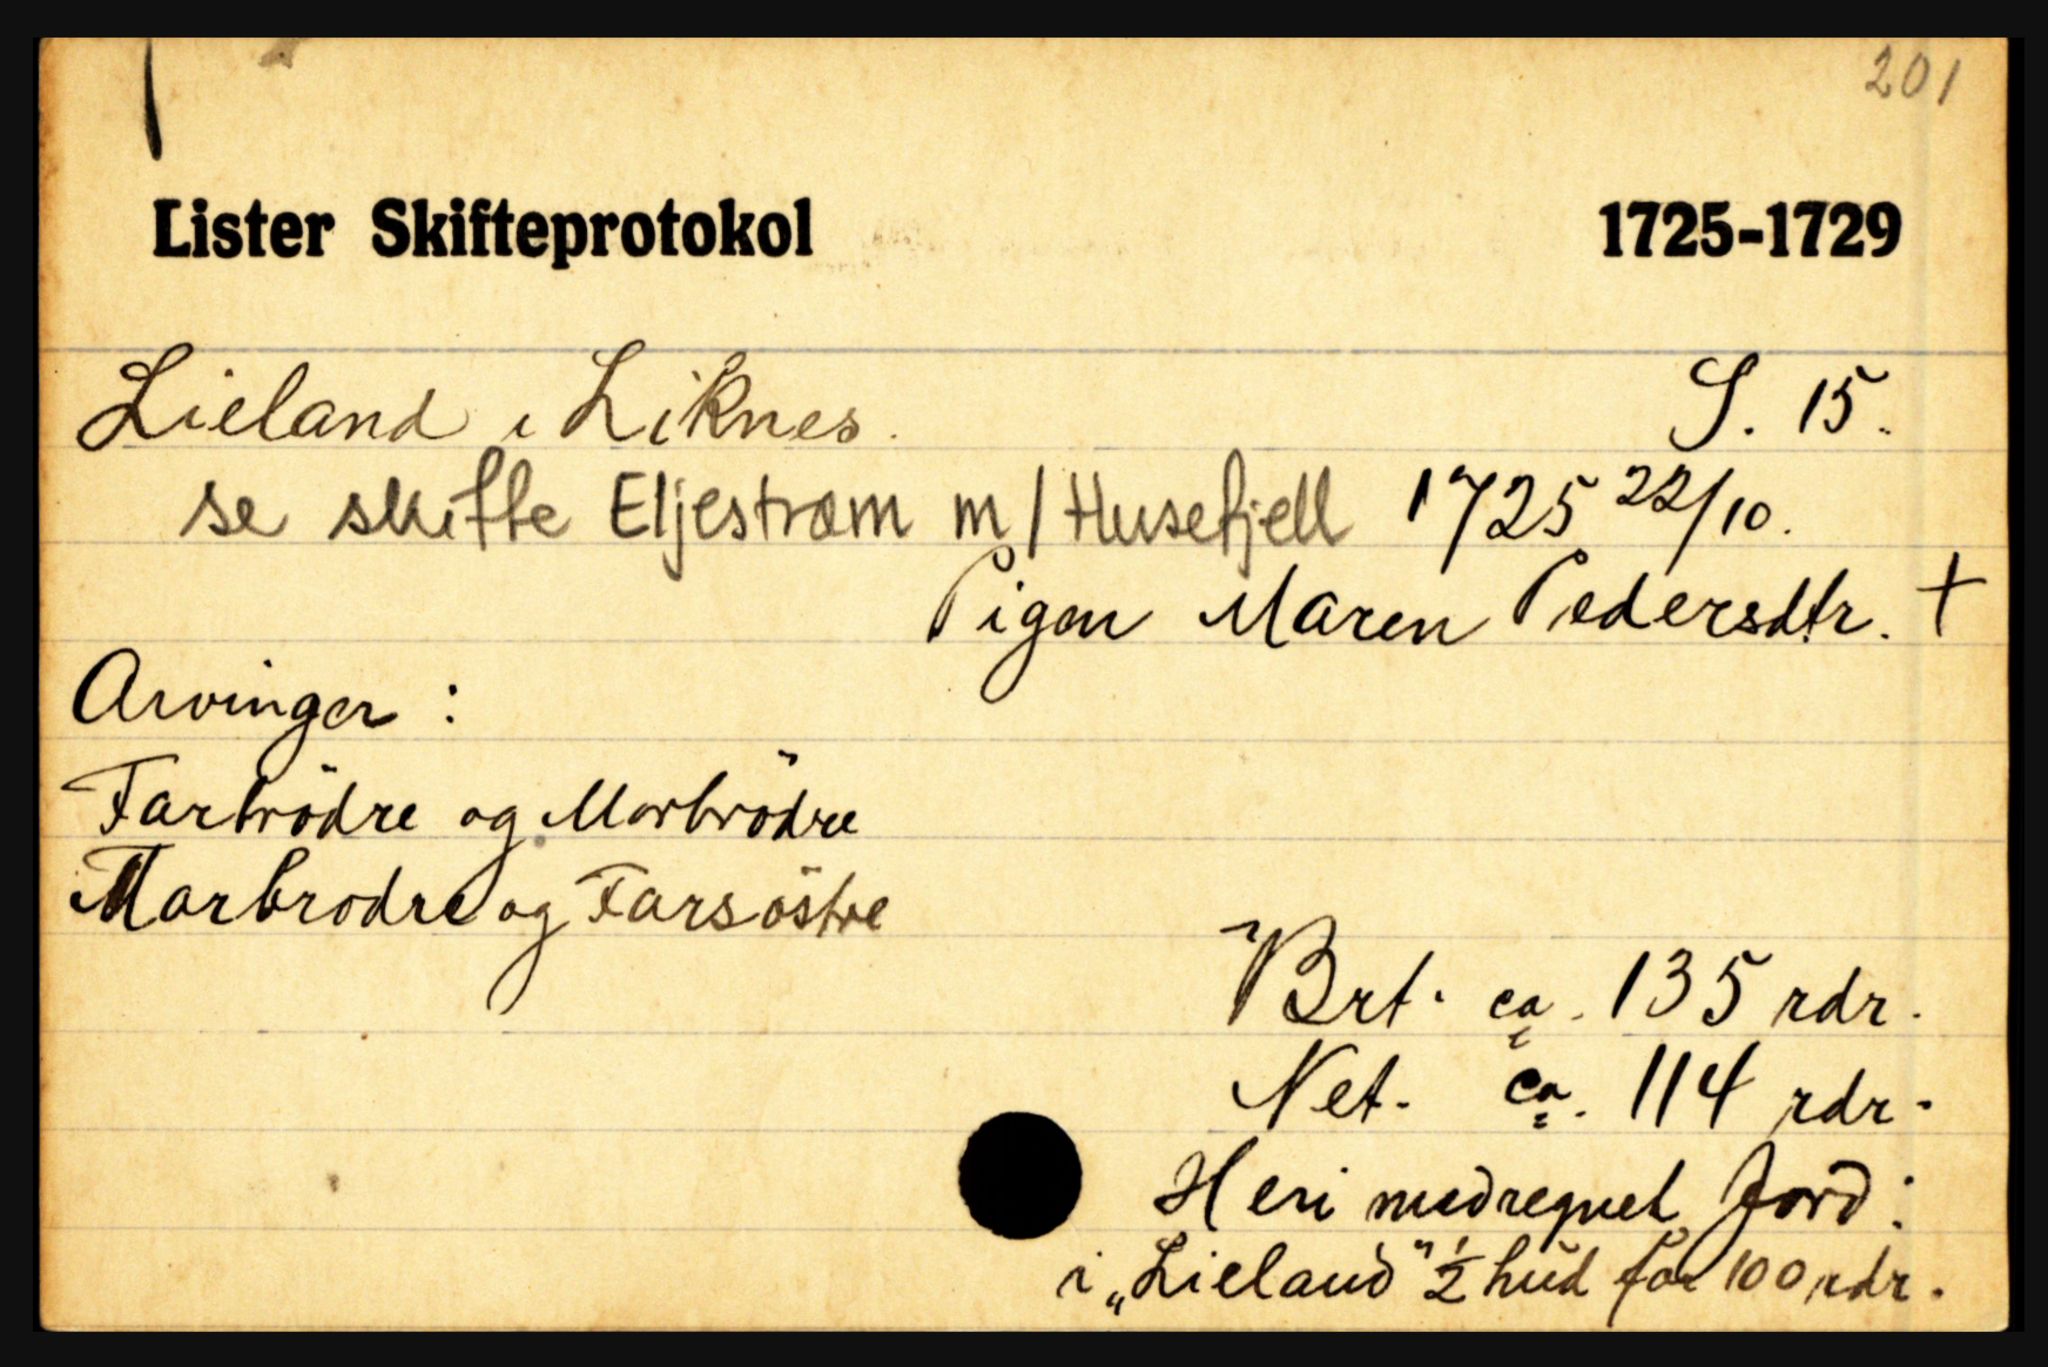 201
Lister Skifteprotokol 1725-1729
Lieland i Liknes. S. 15.
se skifte Eljestraum m/Husefjell 1725 22/10.
Pigen Maren Pedersdtr. †
Arvinger :
Farbrödre og Morbrödre
Morbrodre og Farsöstre
Brt. ca. 135 rdr.
Net. ca. 114 rdr.
Heri medregnet Jord :
i „Lieland" 1/2 hud for 100 rdr.